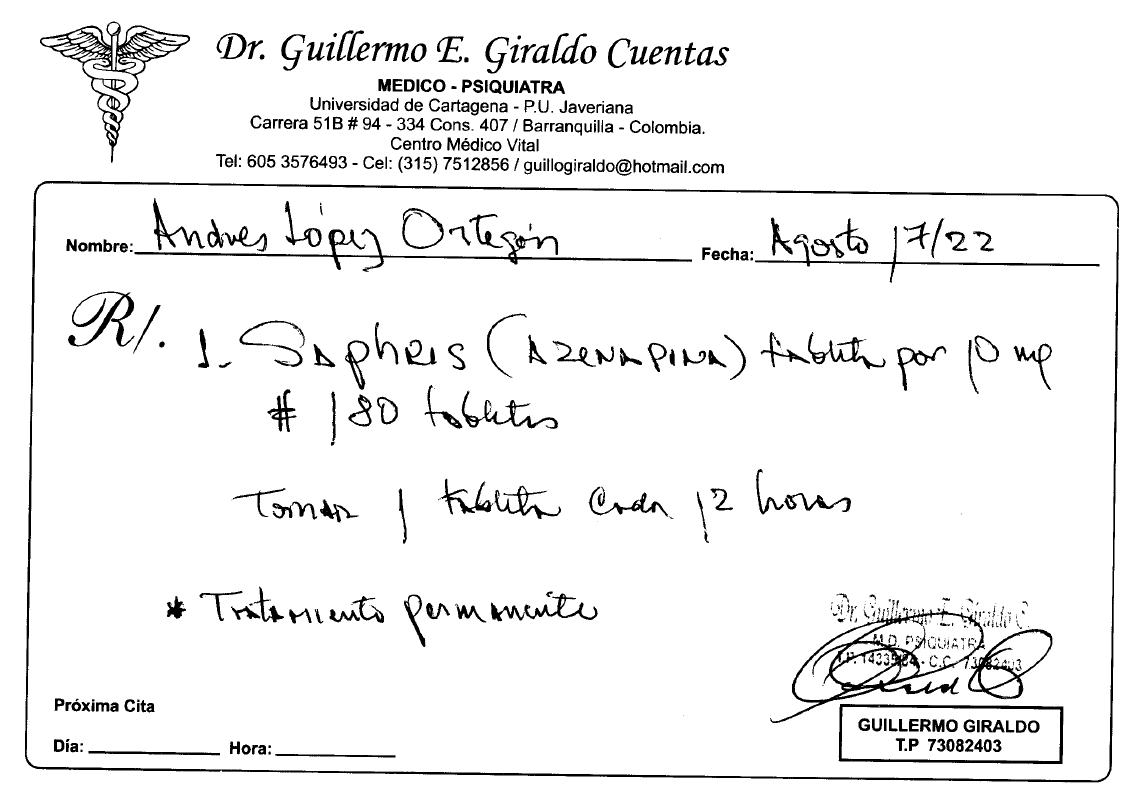 Dr. Guillermo E. Giraldo Cuentas
MEDICO - PSIQUIATRA
Universidad de Cartagena - P.U. Javeriana
Carrera 51B # 94 - 334 Cons. 407 / Barranquilla - Colombia.
Centro Médico Vital
Tel: 605 3576493 - Cel: (315) 7512856 / guillogiraldo@hotmail.com
Nombre: Andres López Ortegón Fecha: Agosto 17/22
R/. 1- Saphris (Azenapina) tableta por 10 mg
# 180 tabletas
Tomar 1 tableta cada 12 horas
* Tratamiento permanente
Dr. Guillermo E. Giraldo C.
M.D. PSIQUIATRA
C.C. 73082403
Próxima Cita
Día: Hora:
GUILLERMO GIRALDO
T.P 73082403